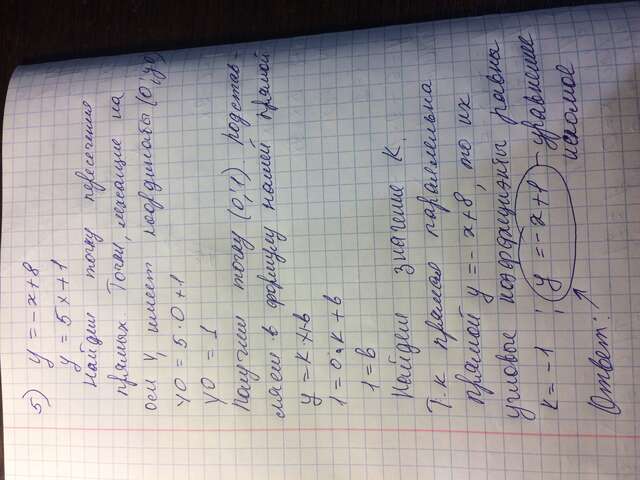 5) y = -x+8
y = 5x+1
Найдем точку пересечения
прямых. Точки, лежащие на
оси y, имеет координаты (0; y0)
y0 = 5·0+1
y0 = 1
Получаем точку (0; 1) подстав-
ляем в формулу нашей прямой
y = kx+b
1 = 0·k+b
1 = b
Найдем значение k.
Т.к прямая параллельна
прямой y = -x+8, то их
угловые коэффициенты равны
k = -1; y = -x+1 - уравнение
искомое
Ответ: ↑